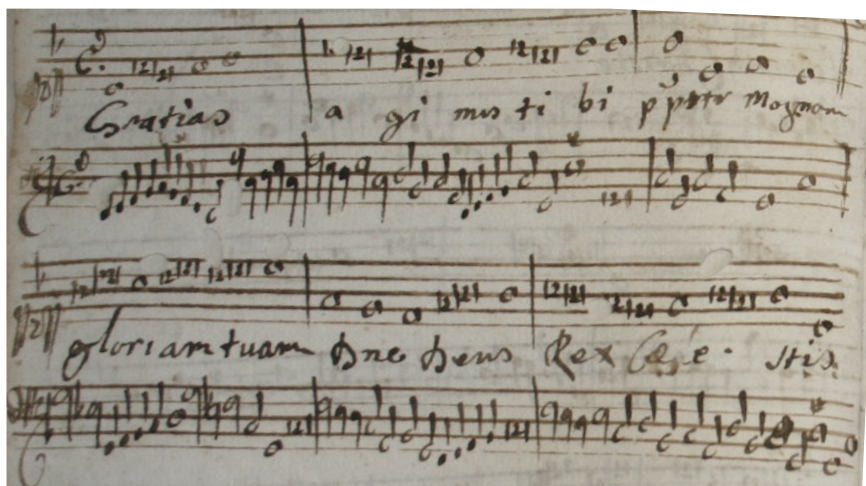 Gratias a gi mus ti bi pptr Magnam
gloriam tuam Dne Deus Rex Cæ e. stis